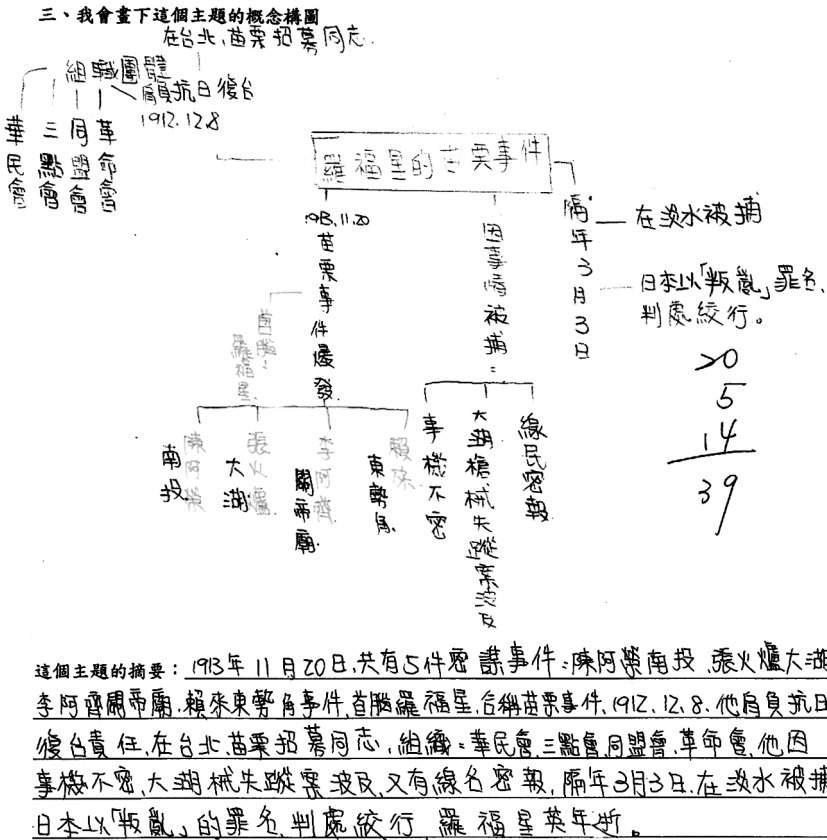 三、我會畫下這個主題的概念構圖
在台北、苗栗招募同志.
組職團體
肩負抗日復台
1912.12.8
華民會
三點會
同盟會
革命會
羅福星的苗栗事件
1913.11.20
苗栗事件爆發
首腦:
羅福星
南投
陳阿榮
大湖
張火爐
關帝廟
李阿齊
東勢角
賴來
因事情被捕:
事機不密
大湖槍械失蹤案波及
線民密報
隔年3月3日
在淡水被捕
日本以「叛亂」罪名,
判處絞行。
20
5
14
39
這個主題的摘要:1913年11月20日,共有5件密謀事件:陳阿榮南投、張火爐大湖
李阿齊關帝廟.賴來東勢角事件,首腦羅福星,合稱苗栗事件,1912.12.8.他肩負抗日
復台責任,在台北、苗栗招募同志,組織:華民會、三點會、同盟會、革命會,他因
事機不密,大湖械失蹤案波及,又有線名密報,隔年3月3日,在淡水被捕
日本以「叛亂」的罪名,判處絞行 羅福星英年逝。